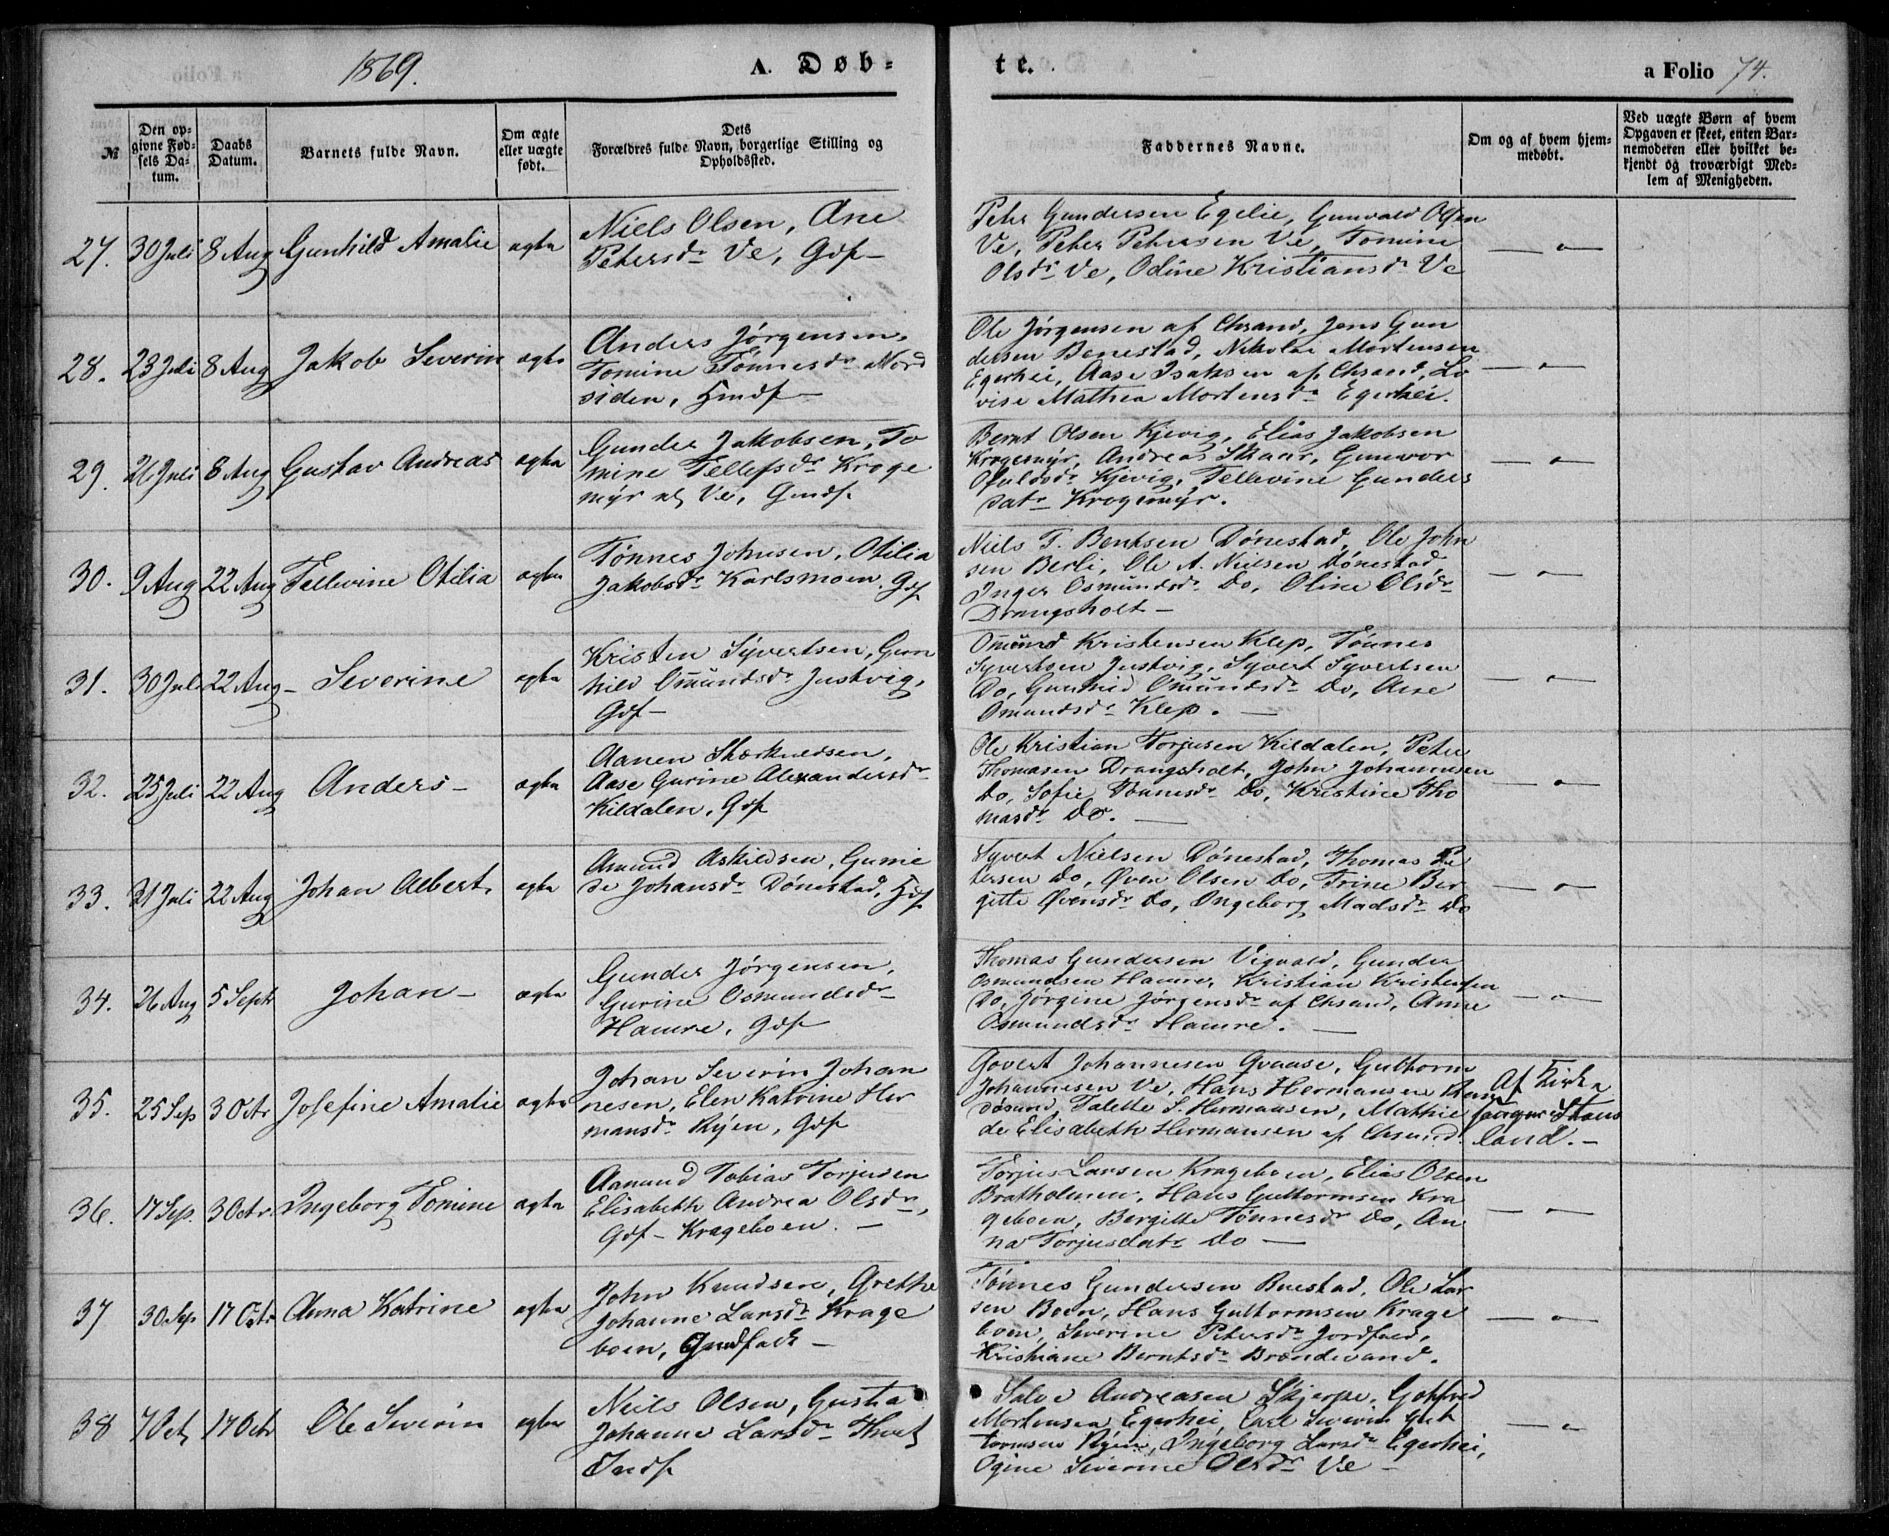 1869.
A. Døb-
te.
a Folio 74.
№
Den opgivne Fødsels Datum.
Daabs Datum.
Barnets fulde Navn.
Om ægte eller uægte født.
Dets Forældres fulde Navn, borgerlige Stilling og Opholdssted.
Faddernes Navne.
Om og af hvem hjemmedøbt.
Ved uægte Børn af hvem Opgaven er skeet, enten Barnemoderen eller hvilket bekjendt og troværdigt Medlem af Menigheden.
27. 30 Juli 8 Aug Gunhild Amalie ægte
Niels Olsen, Ane
Petersdr Ve, Gdf
Peter Gundersen Egelie, Gunvald Olsen
Ve, Peter Petersen Ve, Tomine
Olsdr Ve, Odine Kristiansdr Ve
28. 23 Juli 8 Aug Jakob Severin ægte
Anders Jørgensen,
Tomine Tønnesdr Nord
siden, Hmdf
Ole Jørgensen af Chrsand, Jens Gun
dersen Benestad, Nikolai Mortensen
Egerhei, Aase Isaksen af Chrsand, Lo
vise Mathea Mortensdr Egerhei.
29. 26 Juli 8 Aug Gustav Andreas ægte
Gunder Jakobsen, To
mine Tellefsdr Kroge
myr at Ve, Gmdf.
Bernt Olsen Kjevig, Elias Jakobsen
Krogemyr, Andreas Skaar, Gunvor
Kjevig, Tellevine Gunders
datr Krogemyr.
30. 9 Aug 22 Aug Tellevine Otilia ægte
Tønnes Johnsen, Otilia
Jakobsdr Karlsmoen, Gdf
Niels T. Bentsen Dønestad, Ole John
sen Berli, Ole A. Nielsen Dønestad,
Inger Osmundsdr Do, Oline Olsdr
Drangsholt
31. 30 Juli 22 Aug Severine ægte
Kristen Syvertsen, Gun
hild Omundsdr Justvig,
Gdf
Omund Kristensen Klep, Tønnes
Syvertsen Justvig, Syvert Syvertsen
Do, Gunhild Omundsdr Do, Aase
Omundsdr Klep.
32. 25 Juli 22 Aug Anders ægte
Aanen Stærkuldsen,
Aase Gurine Alexandersdr
Kildalen, Gdf
Ole Kristian Torjusen Kildalen, Peter
Thomasen Drangsholt, John Johannesen
Do, Sofie Do, Kristine Tho
masdr Do.
33. 31 Juli 22 Aug Johan Albert ægte
Amund Askildsen, Gunil
de Johansdr Dønestad, Hdf
Syvert Nielsen Dønestad, Thomas Pe
tersen Do, Øven Olsen Do, Trine Ber
gitte Øvensdr Do, Ingeborg Madsdr Do
34. 26 Aug 5 Septr Johan ægte
Gunder Jørgensen,
Gurine Osmundsdr
Hamre, Gdf
Thomas Gundersen Vigvold, Gunder
Osmundsen Hamre, Kristian Kristensen
Do, Jørgine Jørgensdr af Chrsand, Anne
Osmundsdr Hamre.
35. 25 Sep 3 Octr Josefine Amalie ægte
Johan Severin Johan
nesen, Elen Katrine Her
mansdr Ryen, Gdf
Govert Johannesen Qvaase, Guttorm
Johannesen Ve, Hans Hermansen Ran
døsund, Talette S. Hermansen, Mathil
de Elisabeth Hermansen af Chrsand.
Af Kirke
sanger Staus
land.
36. 17 Sep. 3 Octr Ingeborg Tomine ægte
Aanund Tobias Torjusen
Elisabeth Andrea Olsdr,
Gdf Krageboen.
Torjus Larsen Krageboen, Elias Olsen
Bratholmen, Hans Guttormsen Kra
geboen, Bergitte Tønnesdr Do, An
na Torjusdatr Do
37 30 Sep 17 Octr Anna Katrine ægte
John Knudsen, Grethe
Johanne Larsdr Krage
boen, Gmdfolk
Tønnes Gundersen Buestad, Ole Lar
sen Boen, Hans Guttormsen Krage
boen, Severine Petersdr Jordfald,
Kristiane Berntsdr Brændevand.
38 7 Oct 17 Octr Ole Severin ægte
Niels Olsen, Gusta
Johanne Larsdr
Indf
Salve Andreasen Skjerpe, Gotfred
Mortensen Egerhei, Carl Severin Gut
tormsen Ryen, Ingeborg Larsdr Egerhei,
Ogine Severine Olsdr Ve